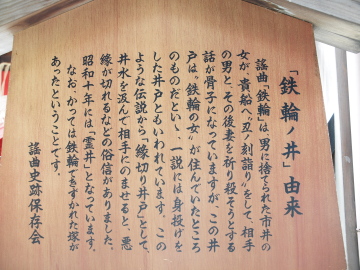 「鉄輪ノ井」由来
謡曲「鉄輪」は、男に捨てられた市井の
女が、貴船へ〝丑ノ刻詣り〟をして、相手
の男と、その後妻を祈り殺そうとする
話が骨子になっていますが、この井
戸は、〝鉄輪の女〟が住んでいたところ
のものだといゝ、一説には身投げを
した井戸ともいわれています。この
ような伝説から〝縁切り井戸〟として、
井水を汲んで相手にのませると、悪
縁が切れるなどの俗信がありました。
昭和十年には、「霊井」となっています。
なお、かつては鉄輪できずかれた塚が
あったということです。
謡曲史跡保存会